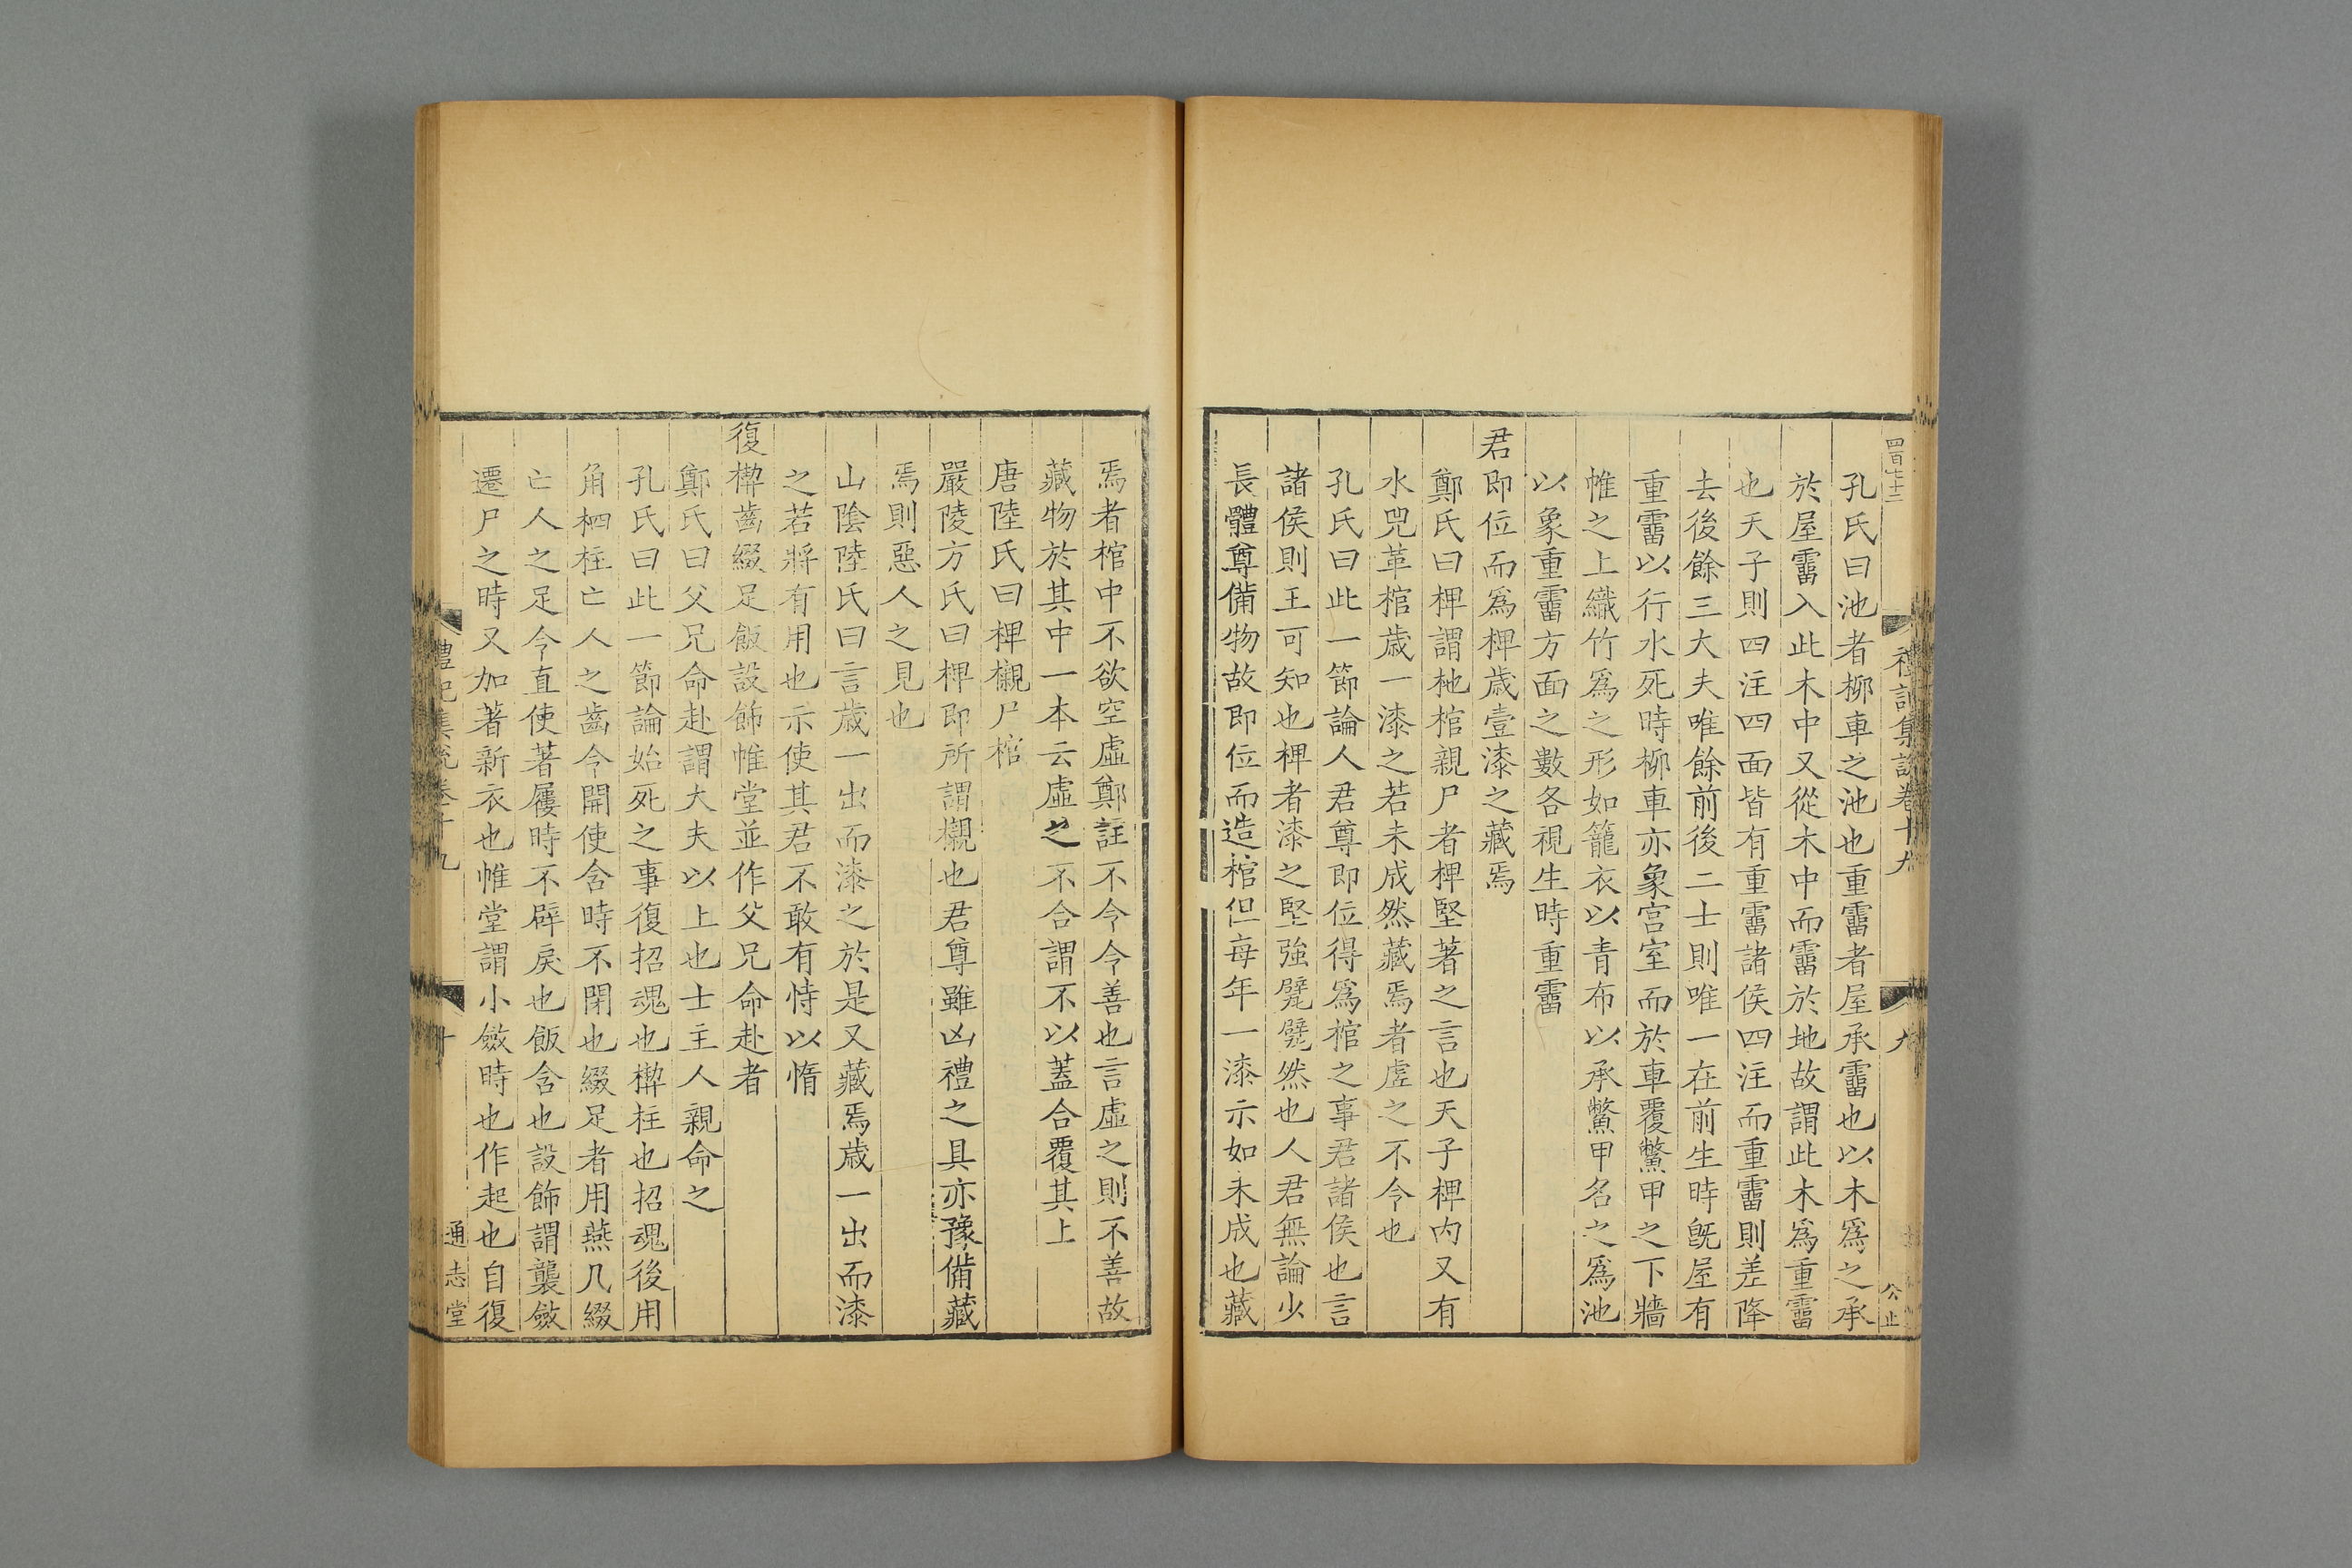 四百七十二
禮記集說卷十九
九
公止
孔氏曰池者柳車之池也重霤者屋承霤也以木爲之承
於屋霤入此木中又從木中而霤於地故謂此木爲重霤
也天子則四注四面皆有重霤諸侯四注而重霤則差降
去後餘三大夫唯餘前後二士則唯一在前生時旣屋有
重霤以行水死時柳車亦象宫室而於車覆鱉甲之下牆
帷之上織竹爲之形如籠衣以青布以承鱉甲名之爲池
以象重霤方面之數各視生時重霤
君即位而爲椑歲壹漆之藏焉
鄭氏曰椑謂杝棺親尸者椑堅著之言也天子椑内又有
水兕革棺歲一漆之若未成然藏焉者虛之不令也
孔氏曰此一節論人君尊即位得爲棺之事君諸侯也言
諸侯則王可知也椑者漆之堅強甓甓然也人君無論少
長體尊備物故即位而造棺但每年一漆示如未成也藏
焉者棺中不欲空虛鄭註不令令善也言虛之則不善故
藏物於其中一本云虛之不合謂不以蓋合覆其上
唐陸氏曰椑櫬尸棺
嚴陵方氏曰椑即所謂櫬也君尊雖凶禮之具亦豫備藏
焉則惡人之見也
山隂陸氏曰言歲一出而漆之於是又藏焉歲一出而漆
之若將有用也示使其君不敢有恃以惰
復楔齒綴足飯設飾帷堂並作父兄命赴者
鄭氏曰父兄命赴謂大夫以上也士主人親命之
孔氏曰此一節論始死之事復招魂也楔柱也招魂後用
角柶柱亡人之齒令開使含時不閉也綴足者用燕几綴
亡人之足令直使著屨時不辟戾也飯含也設飾謂襲斂
遷尸之時又加著新衣也帷堂謂小斂時也作起也自復
禮記集說卷十九
十
通志堂